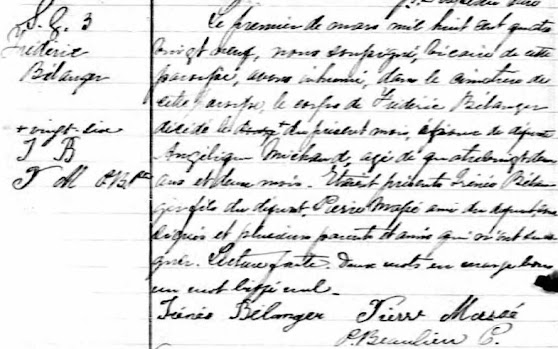 S. 3
Frédéric
Bélanger
+ vingt-six
I B
P M P.B. Ptre
Le premier de mars mil huit cent quatre
vingt neuf, nous soussigné, vicaire de cette
paroisse, avons inhumé, dans le cimetière de
cette paroisse, le corps de Frédéric Bélanger
décédé le du présent mois, époux de défunte
Angélique Michaud, agé de quatrevingt
ans et deux mois. Etaient présents Irénée Bélan
ger fils du défunt, Pierre Massé ami du défunt sous
signés et plusieurs parents et amis qui n'ont su si
gner. Lecture faite. Deux mots en marge bons
un mot biffé nul.
Irénée Bélanger Pierre Massé
P. Beaulieu P.